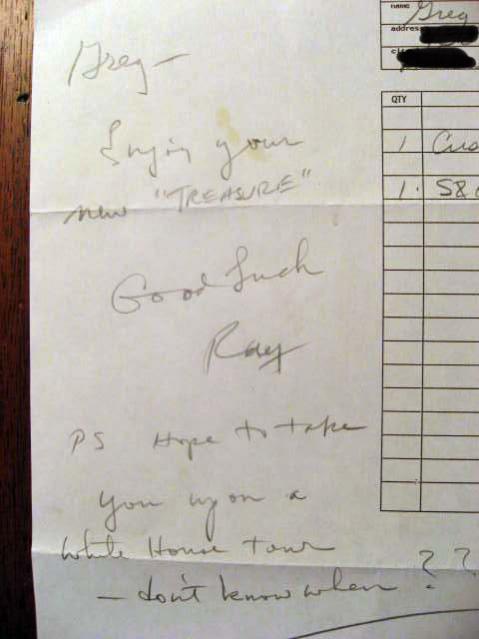 Greg —
Enjoy your
new "TREASURE"
Good Luck
Ray
PS Hope to take
you up on a
White House tour
— don't know when ? ?
name Greg
address
QTY
1
1 S&